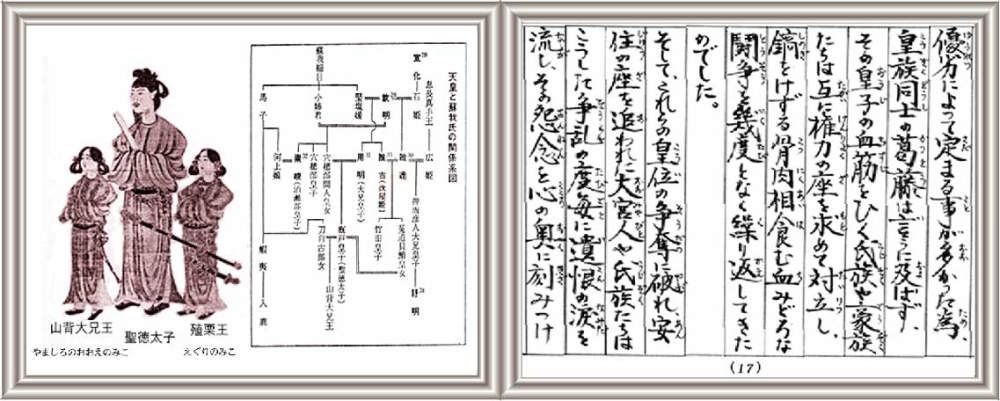 天皇と蘇我氏の関係系図
息長真手王
広姫
宣化
石姫
欽明
敏達
押坂彦人大兄皇子
舒明
菟道貝鮹皇女
推古(炊屋姫)
竹田皇子
蘇我稲目
堅塩媛
用明(大兄皇子)
厩戸皇子(聖徳太子)
山背大兄王
小姉君
穴穂部間人皇女
穴穂部皇子
崇峻(泊瀬部皇子)
刀自古郎女
馬子
河上娘
蝦夷
入鹿
山背大兄王
やましろのおおえのみこ
聖徳太子
殖栗王
えぐりのみこ
優劣によって定まる事が多かった為、
皇族同士の葛藤は言うに及ばず、
その皇子の血筋をひく氏族や豪族
たちは互に権力の座を求めて対立し、
鎬をけずる骨肉相食む血みどろな
闘争を幾度となく繰り返してきた
のでした。
そして、これらの皇位の争奪に破れ、安
住の座を追われた大宮人や氏族たちは
こうした争乱の度毎に遺恨の涙を
流し、その怨念を心の奥に刻みつけ
(17)